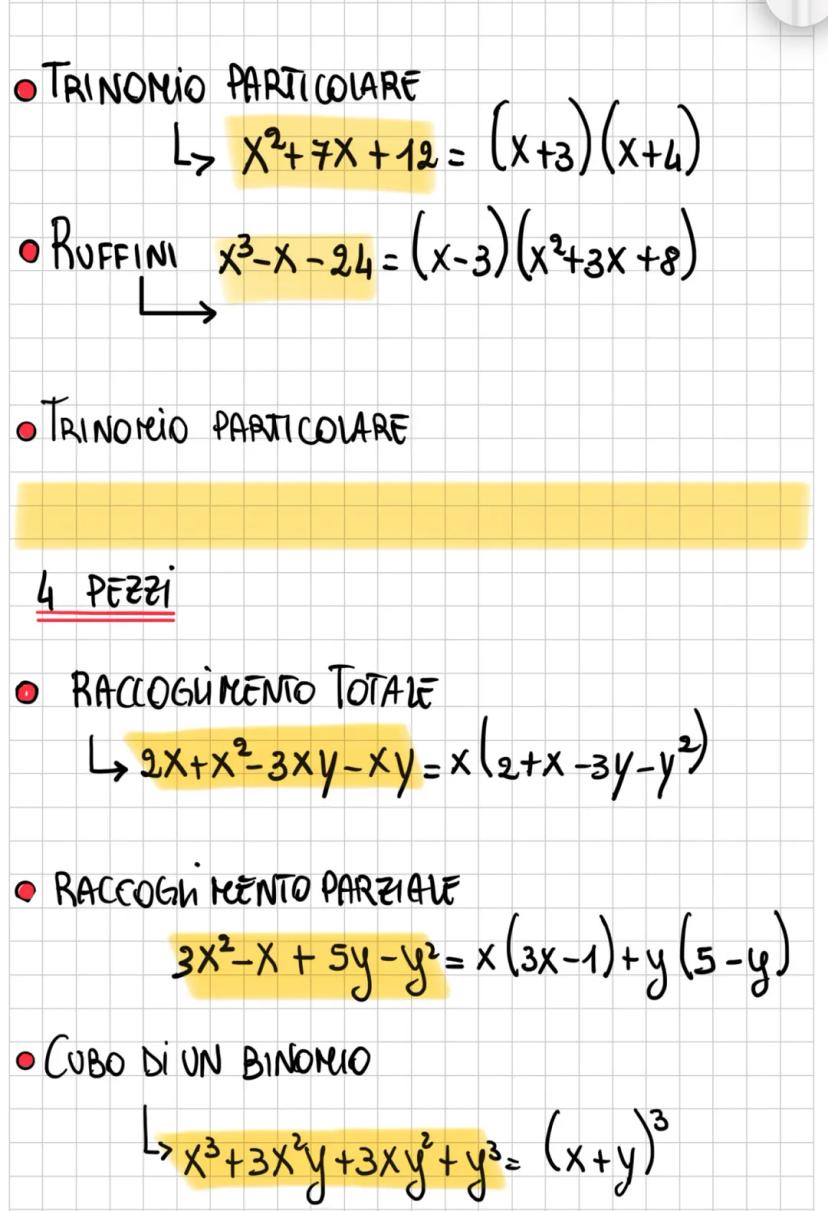 TRINOMIO PARTICOLARE
↳ x²+7x+12 = (x+3)(x+4)
RUFFINI x³-x-24 = (x-3)(x²+3x+8)
TRINOMIO PARTICOLARE
4 PEZZI
RACCOGLIMENTO TOTALE
↳ 2x+x²-3xy-xy = x(2+x-3y-y²)
RACCOGLIMENTO PARZIALE
3x²-x+5y-y² = x(3x-1)+y(5-y)
CUBO DI UN BINOMIO
↳ x³+3x²y+3xy²+y³ = (x+y)³